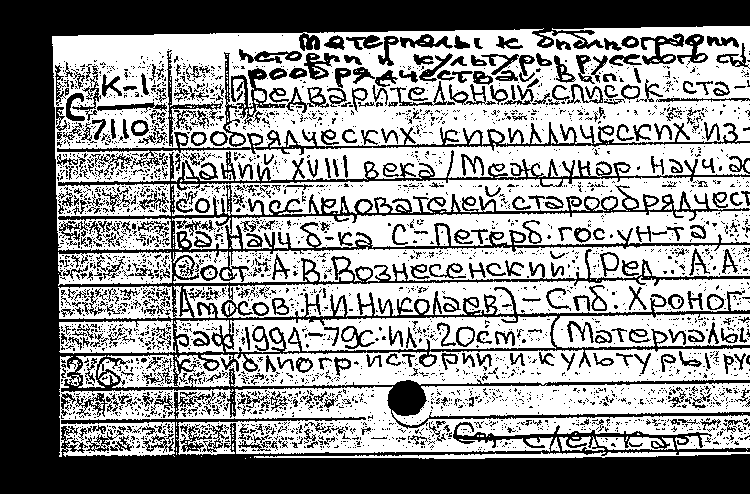 Материалы к библиографии
истории и культуры русского ста
рообрядчества. Вып. 1
С К-1
7110
Предварительный список ста-
рообрядческих кириллических из-
даний XVIII века / Междунар. науч. ас
соц. исследователей старообрядчест
ва, Науч. б-ка С.-Петерб. гос. ун-та;
Сост. А.В. Вознесенский; [Ред.: А.А.
Амосов, Н.И. Николаев]. - Спб: Хроног
раф, 1994. - 79с: ил; 20см. - (Материалы
к библиогр. истории и культуры рус
См. след. карт.